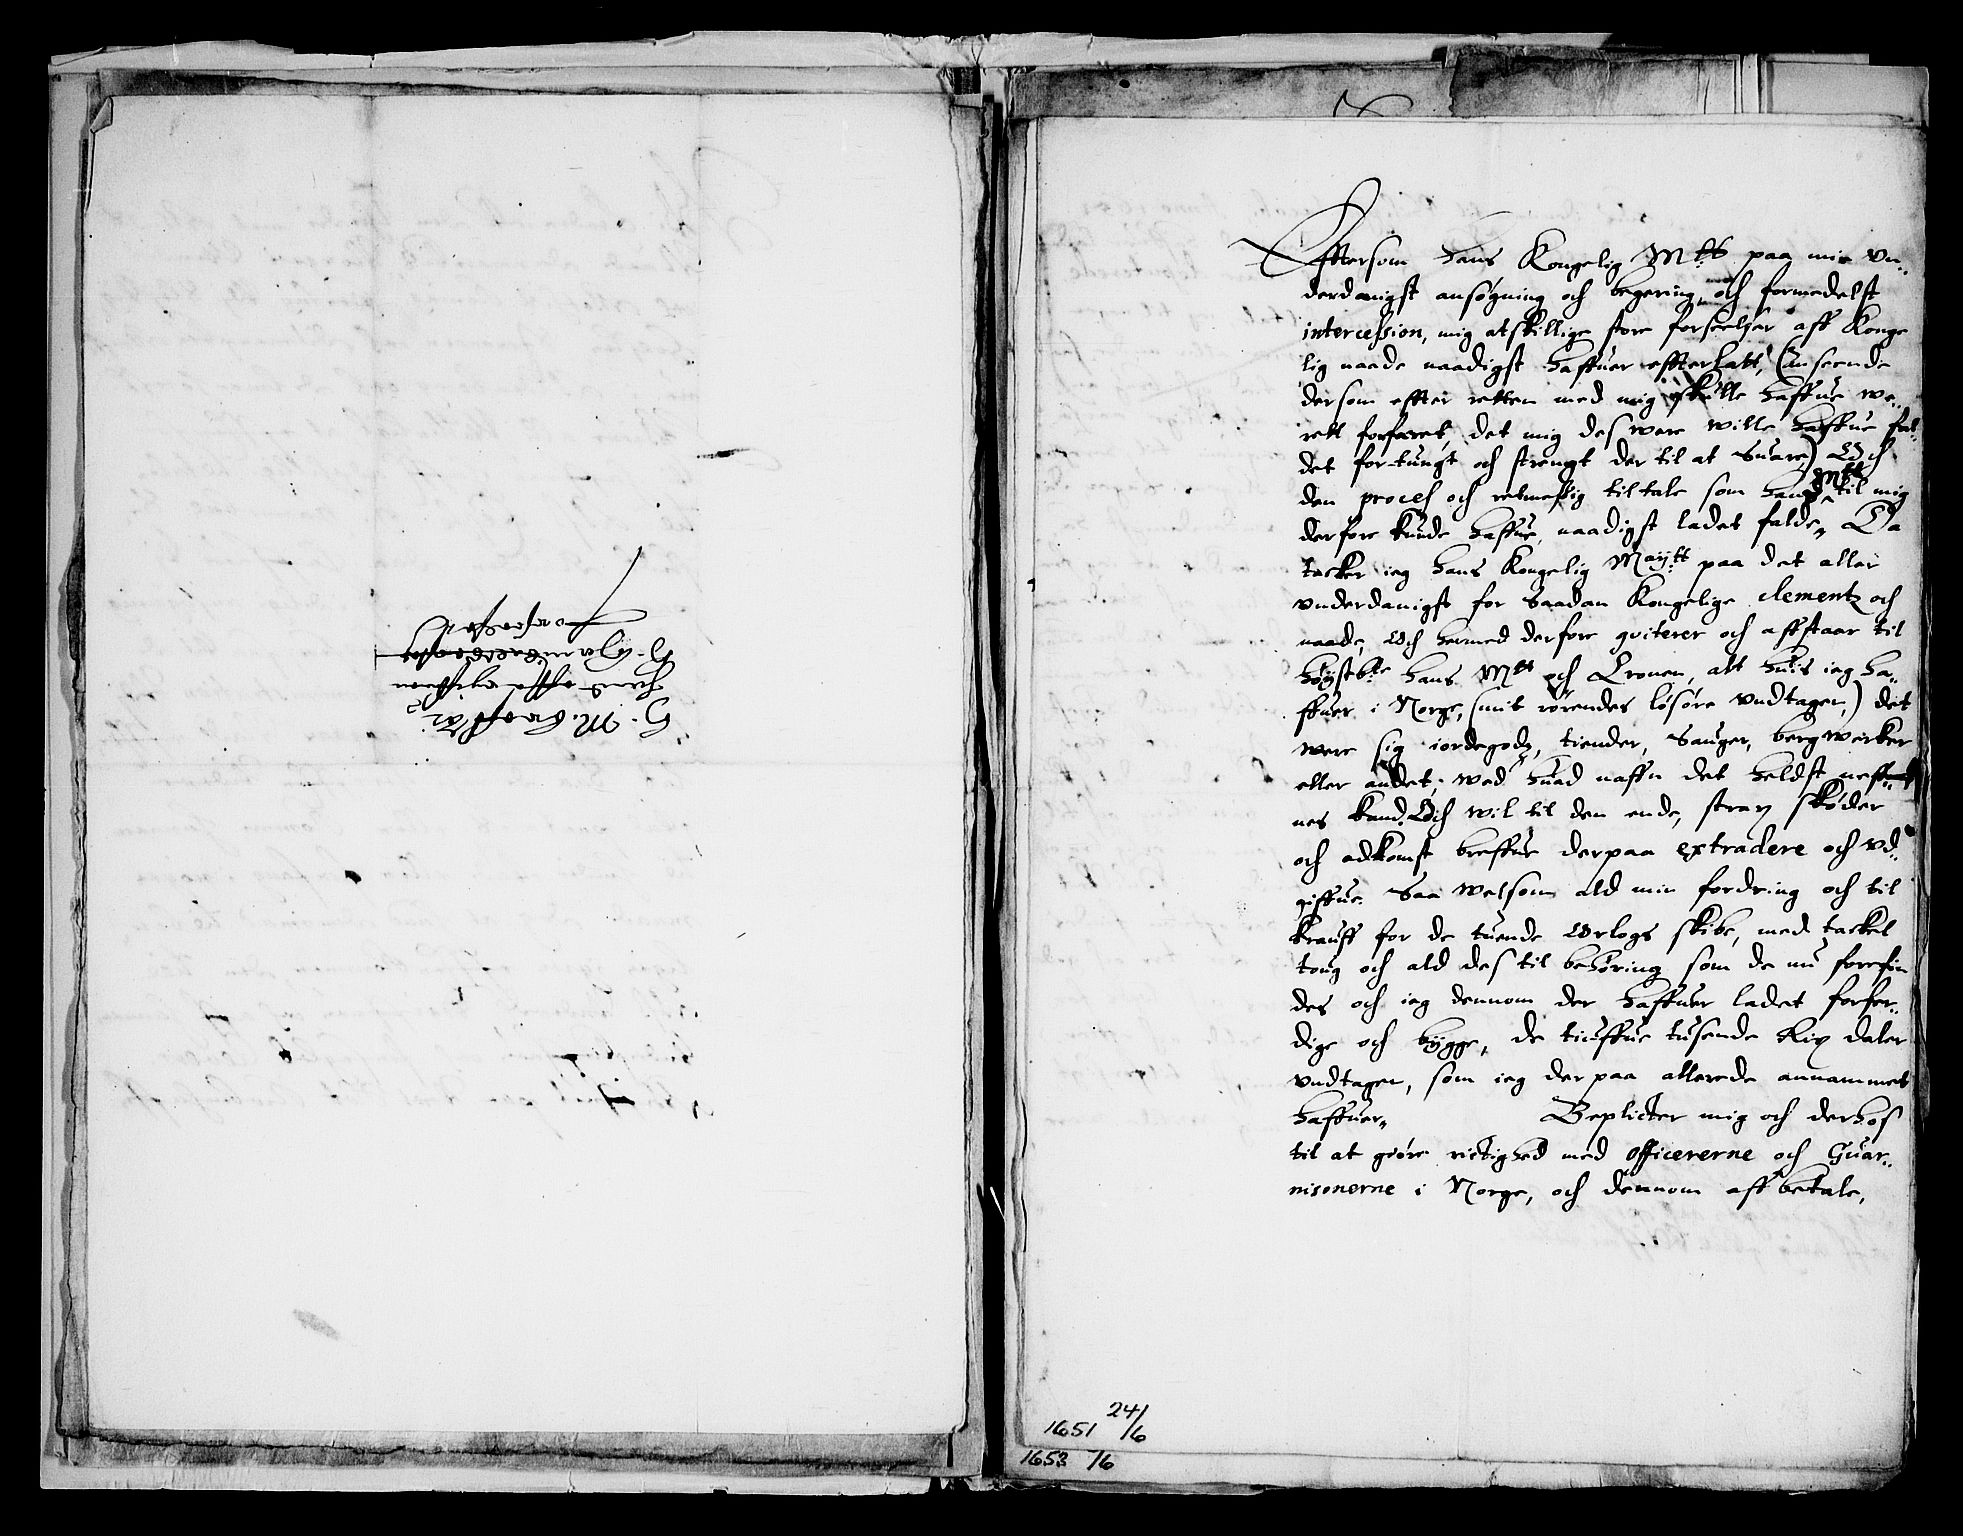 Efftersom hans Kongelig Mtts paa min un-
derdanigst ansøgning och begering och formedelst
intercession, mig atskillige store forseelser aff Konge
lig naade naadigst haffuer effterlatt, (Anseende
dersom effter retten med mig skulle haffue we-
rett forfaret, det mig desvere wille haffue fal-
det for tungt och strengt der til at suare) Och
den process och retmessig tiltale som hans Mtt til mig
derfore kunde haffue, naadigst ladet falde, Da
tacker ieg hans Kongelig Maytt paa det aller
underdanigst for saadan Kongelige clementz och
naade, Och hermed derfore qviterer och affstaar til
høystbte hans Mtt och Cronen, alt huis ieg ha-
ffuer i Norge, (mit rørendes løsøre undtagen,) det
were sig iordegodz, tiender, Sauger, bergwercker
eller andet, wed huad naffn det heldst neff-
nes kand. Och wil til den ende, strax skøder
och adkomst breffue derpaa extradere och ud-
giffue. Saa welsom ald min fordring och til
krauff for de tuende Orlogs skibe, med tackel
toug och ald des tilbehøring som de nu forefin
des och ieg dennom der haffuer ladet forfer-
dige och bygge, de tiuffue tusende Rix daler
undtagen, som ieg derpaa allerede annammet
haffuer. Beplicter mig och derhos
til at giøre rictighed med officererne och Guar-
nisonerne i Norge, och dennom aff betale,
1651 24/6
1652 /6